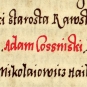 ki starosta Rawsk
Adam Cossniski.
Nikolaiowic Hai